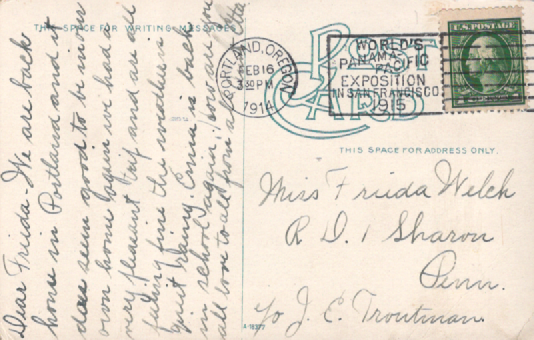 THE SPACE FOR WRITING MESSAGES
Dear Frieda - We are back
home in Portland and it
does seem good to be in our
own home again we had a
very pleasant trip and are all
feeling fine the weather is
quit rainy. Ernie is back
in school again, how are you
all love to all from
POST
CARD
PORTLAND, OREGON
FEB 16
30 PM
1914
WORLD'S
PANAMA-PACIFIC
EXPOSITION
IN SAN FRANCISCO
1915
U.S. POSTAGE
THIS SPACE FOR ADDRESS ONLY.
Miss Frieda Welch
R D. 1 Sharon
Penn.
c/o J. E. Troutman.